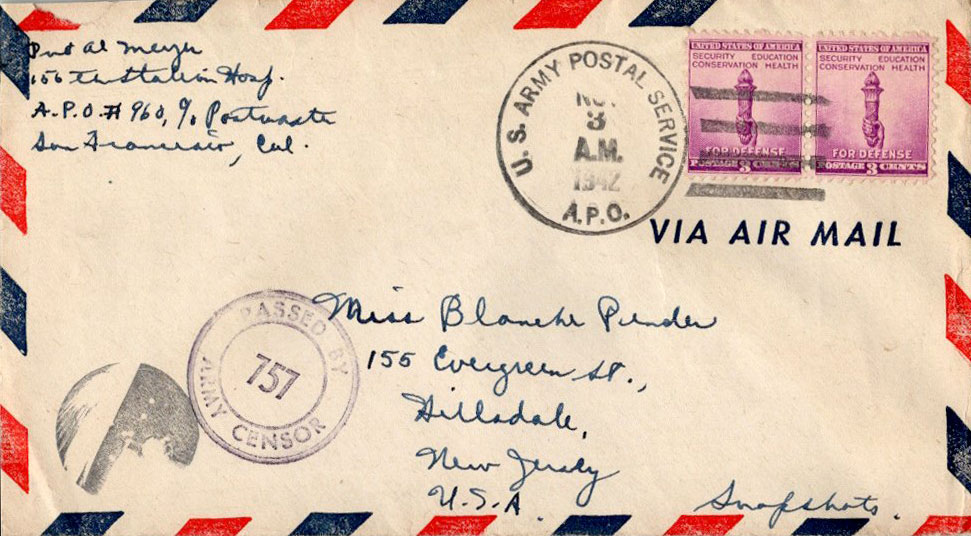 Pvt Al Meyer
156th Station Hosp.
A.P.O. # 960, c/o Postmaster
San Francisco, Cal.
U.S. ARMY POSTAL SERVICE
NOV
3
A.M.
1942
A.P.O.
UNITED STATES OF AMERICA
SECURITY EDUCATION
CONSERVATION HEALTH
FOR DEFENSE
POSTAGE 3 CENTS
UNITED STATES OF AMERICA
SECURITY EDUCATION
CONSERVATION HEALTH
FOR DEFENSE
POSTAGE 3 CENTS
VIA AIR MAIL
PASSED BY
757
ARMY CENSOR
Miss Blanche Pinder
155 Evergreen St.,
Hillsdale,
New Jersey
U.S.A.
Snapshots.